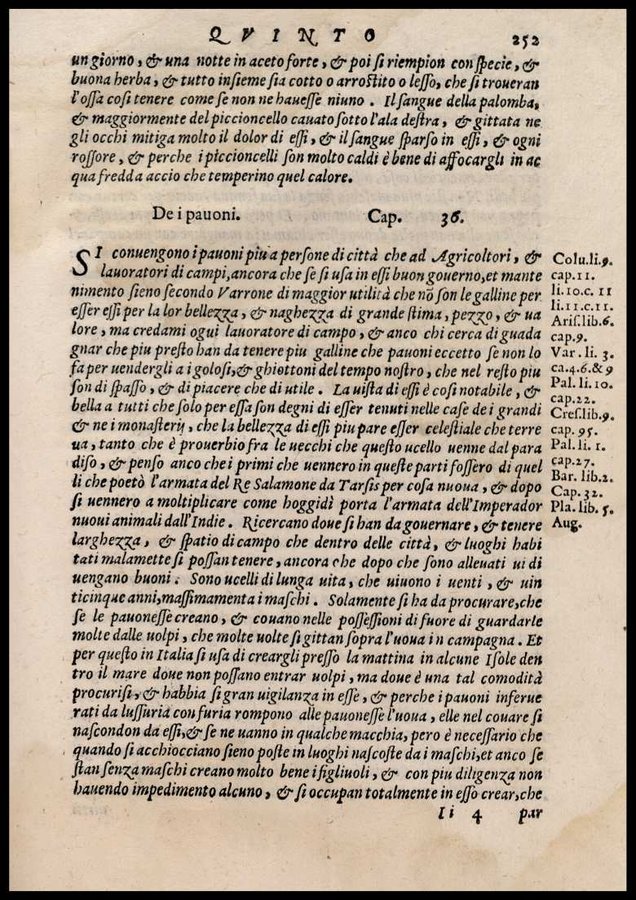 QVINTO 252
un giorno, & una notte in aceto forte, & poi si riempion con specie, &
buona herba, & tutto insieme sia cotto o arrostito o lesso, che si troueran
l'ossa cosi tenere come se non ne hauesse niuno. Il sangue della palomba,
& maggiormente del piccioncello cauato sotto l'ala destra, & gittata ne
gli occhi mitiga molto il dolor di essi, & il sangue sparso in essi, & ogni
rossore, & perche i piccioncelli son molto caldi è bene di affocargli in ac
qua fredda accio che temperino quel calore.
De i pauoni. Cap. 36.
SI conuengono i pauoni piu a persone di città che ad Agricoltori, &
lauoratori di campi, ancora che se si usa in essi buon gouerno, et mante
nimento sieno secondo Varrone di maggior utilità che nõ son le galline per
esser essi per la lor bellezza, & naghezza di grande stima, pezzo, & ua
lore, ma credami ogui lauoratore di campo, & anco chi cerca di guada
gnar che piu presto han da tenere piu galline che pauoni eccetto se non lo
fa per uendergli a i golosi, & ghiottoni del tempo nostro, che nel resto piu
son di spasso, & di piacere che di utile. La uista di essi è cosi notabile, &
bella a tutti che solo per essa son degni di esser tenuti nelle case de i grandi
& ne i monasterij, che la bellezza di essi piu pare esser celestiale che terre
ua, tanto che è prouerbio fra le uecchi che questo ucello uenne dal para
diso, & penso anco che i primi che uennero in queste parti fossero di quel
li che poetò l'armata del Re Salamone da Tarsis per cosa nuoua, & dopo
si uennero a moltiplicare come hoggidì porta l'armata dell'Imperador
nuoui animali dall'Indie. Ricercano doue si han da gouernare, & tenere
larghezza, & spatio di campo che dentro delle città, & luoghi habi
tati malamette si possan tenere, ancora che dopo che sono alleuati ui di
uengano buoni. Sono ucelli di lunga uita, che uiuono i uenti, & uin
ticinque anni, massimamenta i maschi. Solamente si ha da procurare, che
se le pauonesse creano, & couano nelle possessioni di fuore di guardarle
molte dalle uolpi, che molte uolte si gittan sopra l'uoua in campagna. Et
per questo in Italia si usa di creargli presso la mattina in alcune Isole den
tro il mare doue non possano entrar uolpi, ma doue è una tal comodità
procurisi, & habbia si gran uigilanza in esse, & perche i pauoni inferue
rati da lussuria con furia rompono alle pauonesse l'uoua, elle nel couare si
nascondon da essi, & se ne uanno in qualche macchia, pero è necessario che
quando si acchiocciano sieno poste in luoghi nascoste da i maschi, et anco se
stan senza maschi creano molto bene i figliuoli, & con piu diligenza non
hauendo impedimento alcuno, & si occupan totalmente in esso crear, che
Ii 4 par
Colu. li. 9.
cap. 11.
li. 10. c. 11
li. 11. c. 11.
Aris. lib. 6.
cap. 9.
Var. li. 3.
ca. 4. 6. & 9
Pal. li. 10.
cap. 22.
Cres. lib. 9.
cap. 95.
Pal. li. 1.
cap. 27.
Bar. lib. 2.
Cap. 32.
Pla. lib. 5.
Aug.